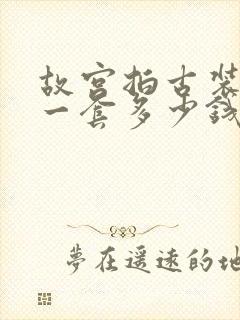 故宫拍古装
一套多少钱
夢在遥远的地